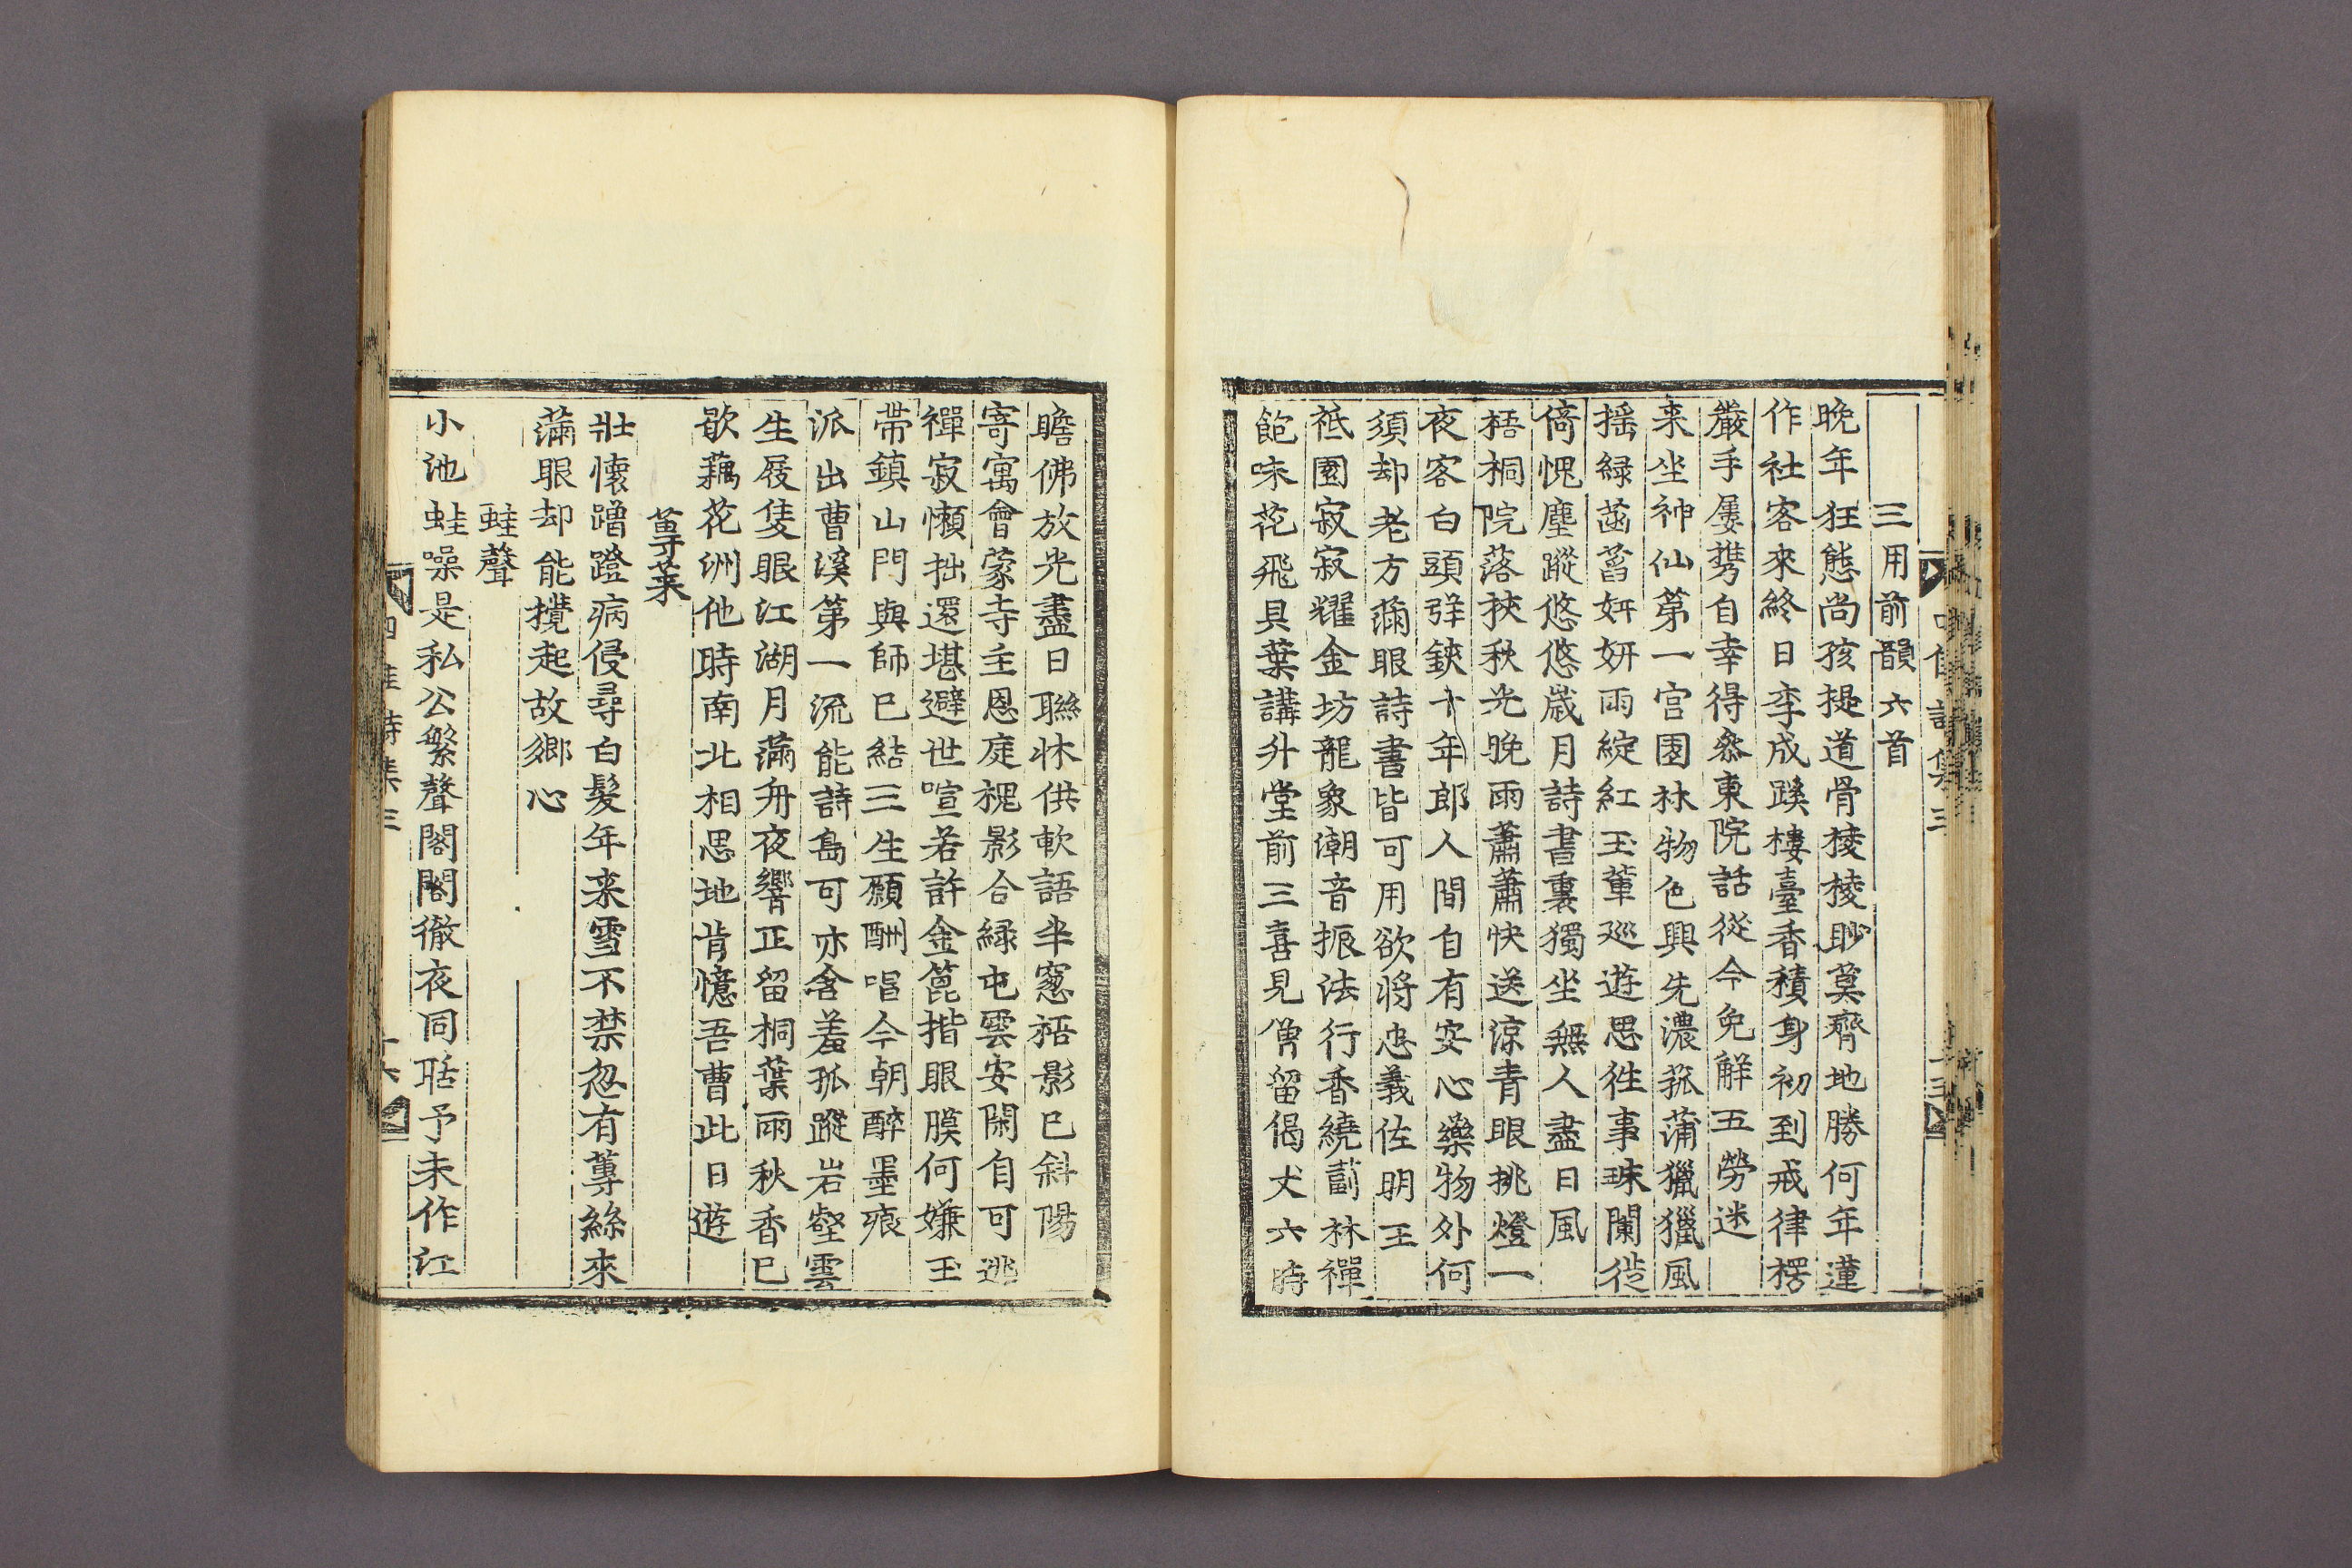 三用前韻六首
晩年狂態尚孩提道骨棱棱眇莫齊地勝何年蓮
作社客來終日李成蹊樓臺香積身初到戒律楞
嚴手屢攜自幸得參東院話從今免觧五勞迷
来坐神仙第一宫園林物色興先濃菰蒲獵獵風
揺緑菡萏妍妍雨綻紅玉輦巡遊思徃事珠闌徙
倚愧塵蹤悠悠歳月詩書裏獨坐無人盡日風
梧桐院落挾秋光晚雨蕭蕭快送涼青眼挑燈一
夜客白頭弹鋏十年郎人間自有安心藥物外何
須却老方滿眼詩書皆可用欲將忠義佐明王
祇園寂寂耀金坊龍象潮音振法行香繞薝林禪
飽味花飛貝葉講升堂前三喜見僧留偈丈六時
瞻佛放光盡日聯牀供軟語半窻梧影已斜陽
寄寓曾蒙寺主恩庭槐影合緑屯雲安閑自可逃
禪寂懶拙還堪避世喧若許金篦揩眼膜何嫌玉
帶鎮山門與師已結三生願酬唱今朝醉墨痕
派出曹溪第一流能詩島可亦含羞孤蹤岩壑雲
生屐隻眼江湖月滿舟夜響正留桐葉雨秋香已
歇藕花洲他時南北相思地肯憶吾曹此日遊
蓴菜
壯懷蹭蹬病侵尋白髮年来雪不禁忽有蓴絲來
滿眼却能攪起故鄉心
蛙聲
小池蛙噪是私公繁聲閣閣徹夜同聒予未作江